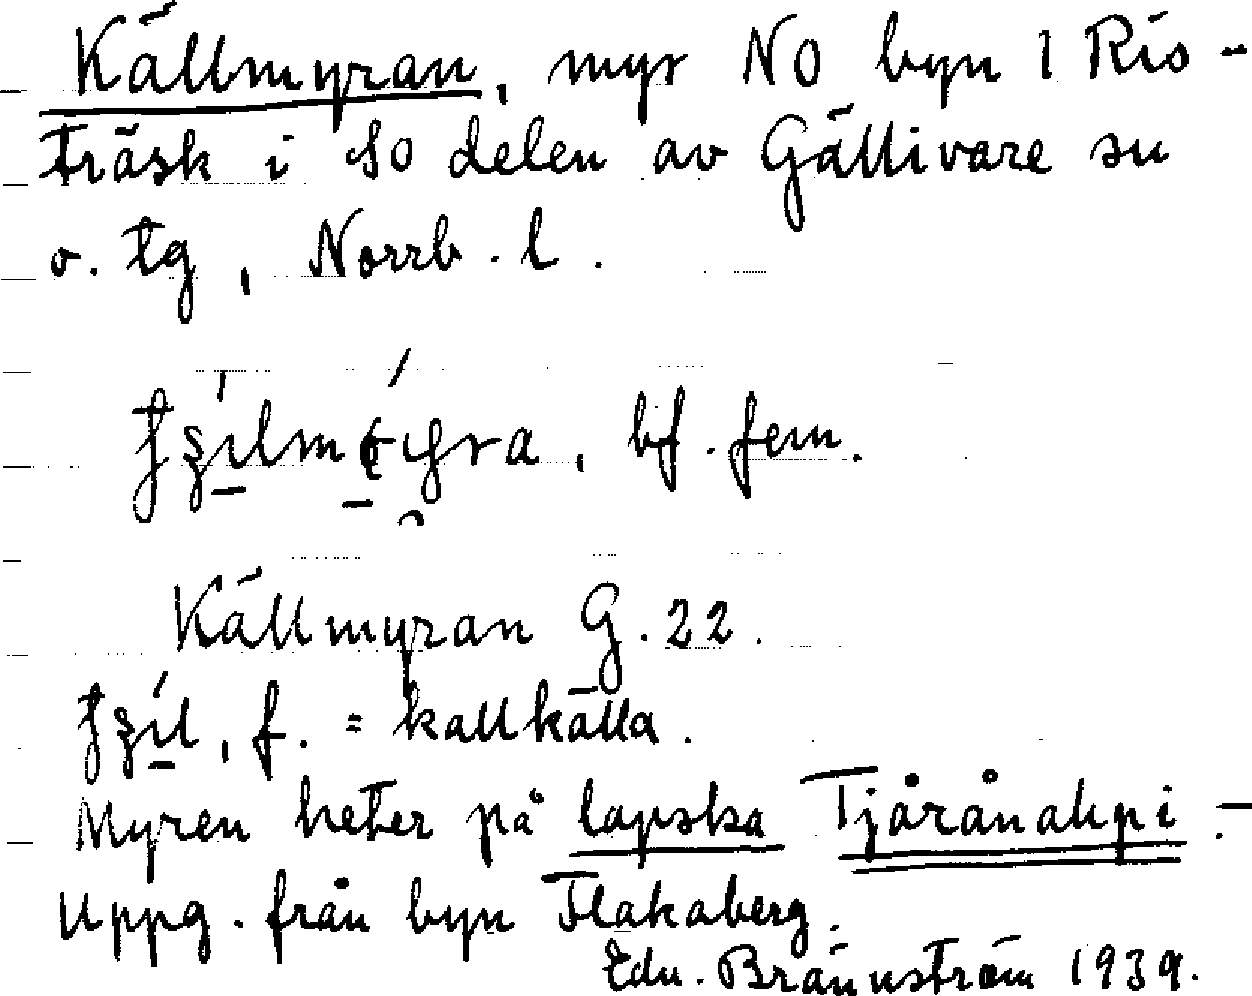 Källmyran, myr NO byn 1 Ris-
träsk i SO delen av Gällivare sn
o. tg, Norrb. l.
bf. fem.
Källmyran G. 22.
f. = kallkälla.
Myren heter på lapska Tjåränahpi.-
Uppg. från byn Flakaberg.
Edv. Brännström 1939.